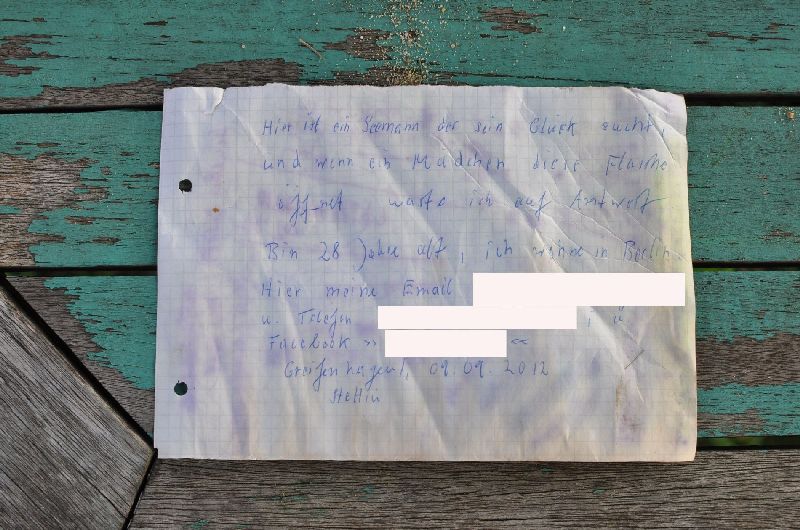 Hier ist ein Seemann der sein Glück sucht,
und wenn ein Mädchen diese Flasche
öffnet warte ich auf Antwort
Bin 28 Jahre alt, ich wohne in Berlin
Hier meine Email
u. Telefon
Facebook » «
Greifenhagen, 09.09.2012
Stettin